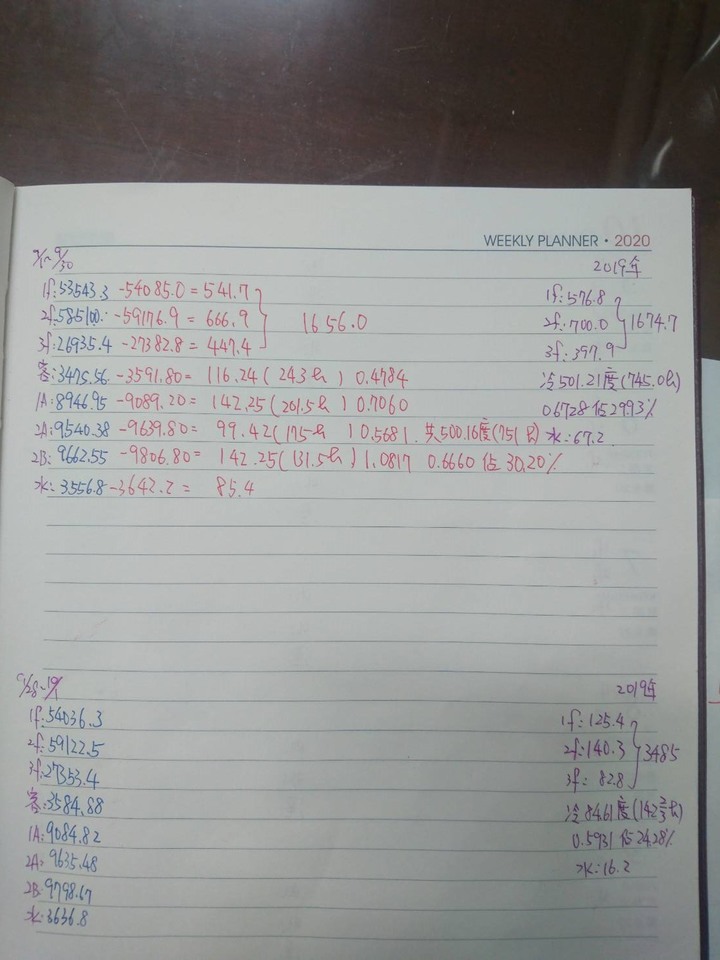 WEEKLY PLANNER • 2020
9/1~9/30
2019年
1f:53543.3 -54085.0 = 541.7
2f:58510.0 -59176.9 = 666.9
3f:26935.4 -27382.8 = 447.4
1656.0
1f:576.8
2f:700.0
3f:397.9
1674.7
客:3475.56 -3591.80= 116.24(243h) 0.4784
冷501.21度(745.0h)
1A:8946.95 -9089.20= 142.25(201.5h) 0.7060
0.6728佔29.93%
2A:9540.38 -9639.80= 99.42(175h) 0.5681. 共500.16度(751h)
水:67.2
2B:9662.55 -9806.80= 142.25(131.5h) 1.0817 0.6660佔30.20%
水:3556.8-3642.2= 85.4
9/28~10/1
2019年
1f:54036.3
2f:59122.5
3f:27353.4
1f:125.4
2f:140.3
3f:82.8
3485
客:3584.88
冷84.61度(142⅔h)
1A:9084.82
0.5931佔24.28%
2A:9635.48
水:16.2
2B:9798.67
水:3636.8